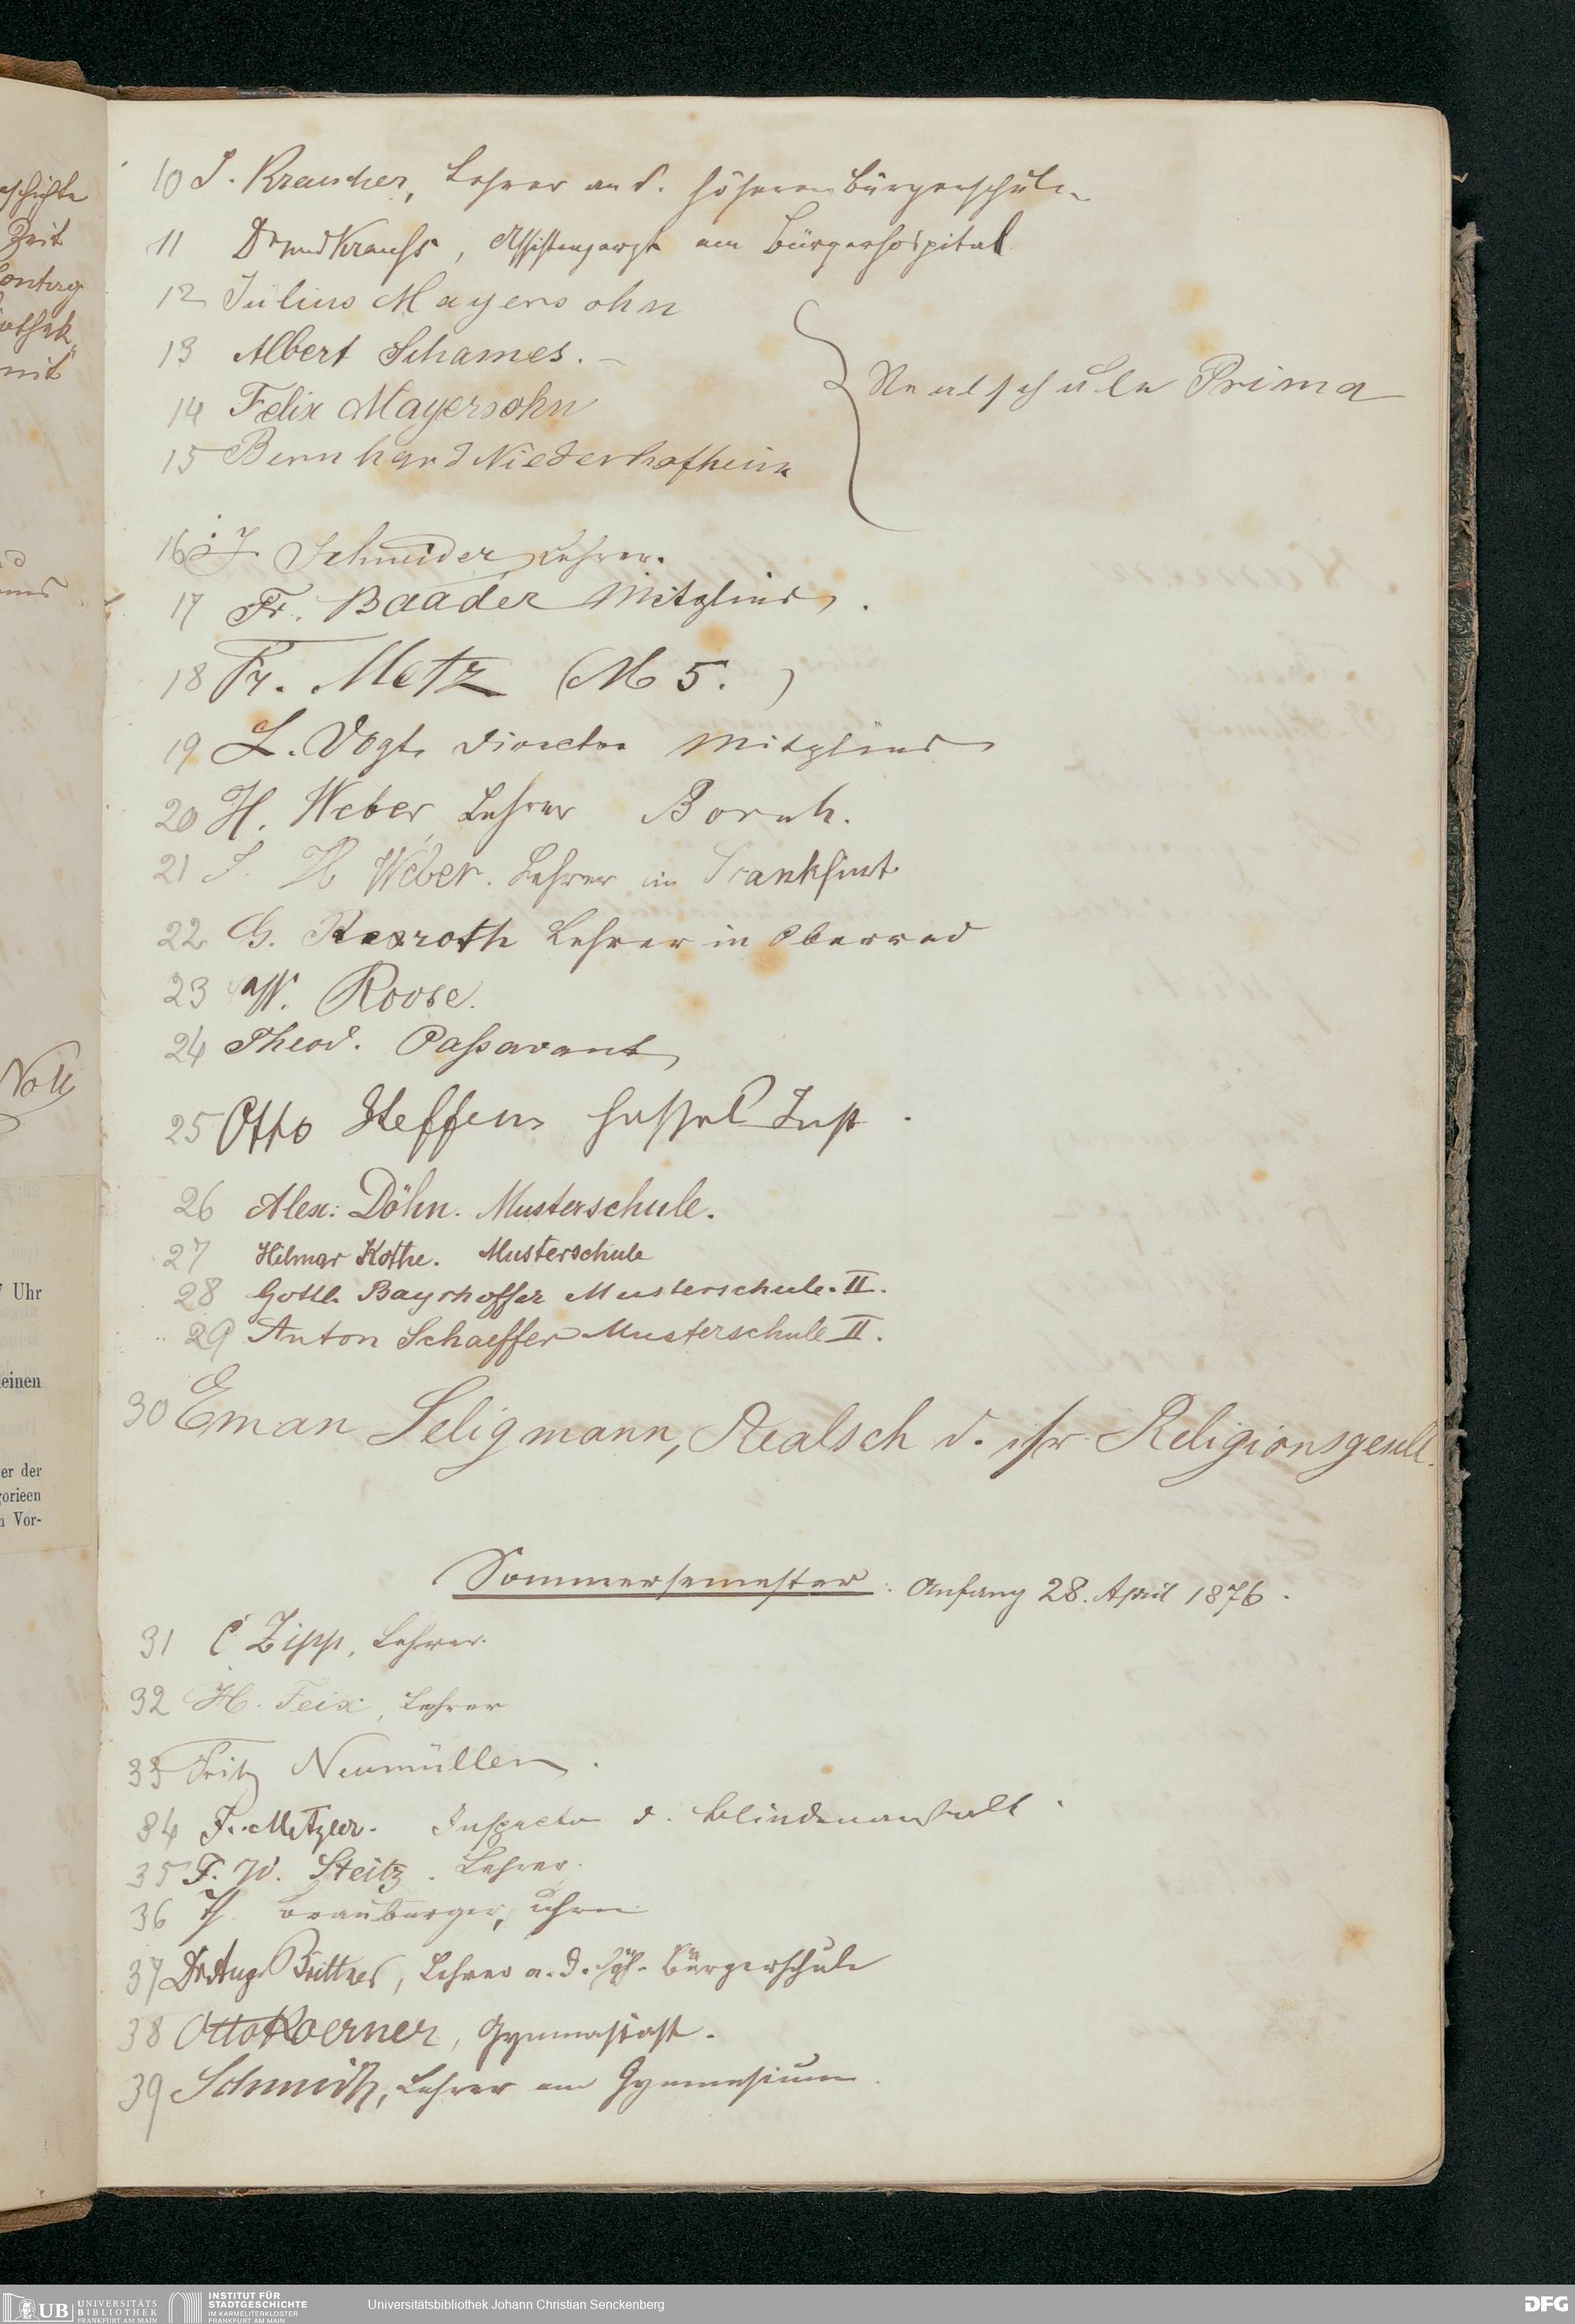 schichte
Zeit
nit
Noll
7 Uhr
einen
er der
gorieen
n Vor-
10 J. Kraucher, Lehrer an d. höheren Bürgerschule
11 Dr med Krauss, Assistenzarzt am Bürgerhospital
12 Julius Mayersohn
13 Albert Schames.
14 Felix Mayersohn
15 Bernhard Niederhofheim
Realschule Prima
16 J. Schneider, Lehrer.
17 Fr. Baader Mitglied.
18 Fr. Metz (M 5.)
19 L. Vogt, Director Mitglied
20 H. Weber, Lehrer Bornh.
21 J. H Weber. Lehrer in Frankfurt
22 G. Rexroth Lehrer in Oberrad
23 W. Roose.
24 Theod. Passavant,
25 Otto Steffens
26 Alex: Döhn. Musterschule.
27 Hilmar Kothe. Musterschule
28 Gottl. Bayrhoffer Musterschule. II.
29 Anton Schaeffer Musterschule II.
30 Eman Seligmann, Realsch d. isr Religionsgesell.
Sommersemester: Anfang 28. April 1876.
31 C Zipp, Lehrer.
32 H. Feix, Lehrer
33 Fritz Neumüller.
34 F. Metzler. Inspector d. Blindenanstalt.
35 F. W. Steitz. Lehrer.
36 Brauburger, Lehrer
37 Dr Aug. Büttner, Lehrer a. d. höh. Bürgerschule
38 Otto Koerner, Gymnasiast.
39 Schmidt, Lehrer am Gymnasium.
UB UNIVERSITÄTS
BIBLIOTHEK
FRANKFURT AM MAIN
INSTITUT FÜR
STADTGESCHICHTE
IM KARMELITERKLOSTER
FRANKFURT AM MAIN
Universitätsbibliothek Johann Christian Senckenberg
DFG